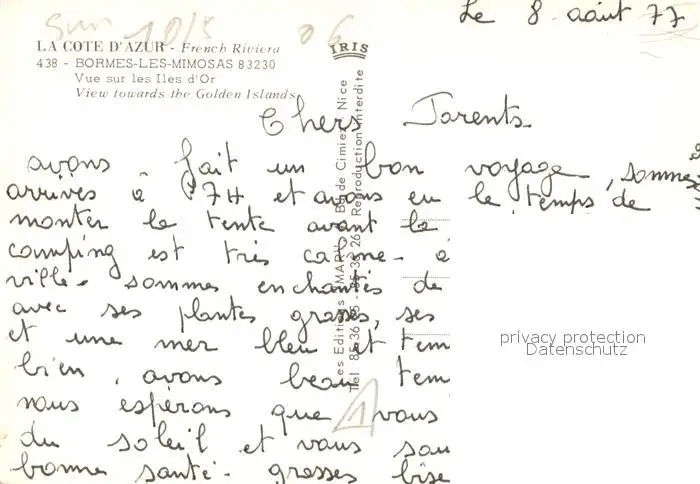 Le 8 août 77
LA COTE D'AZUR - French Riviera
438 - BORMES-LES-MIMOSAS 83230
Vue sur les Iles d'Or
View towards the Golden Islands
IRIS
Chers Parents
avons fait un bon voyage, sommes
arrivés à 17H et avons eu le temps de
monter la tente avant la
camping est très calme - à
ville - sommes enchantés de
avec ses plantes grasses, ses
et une mer bleu et tem
bien, avons beau tem
nous espérons que vous
du soleil et vous sou
bonne santé - grosses bise
Les Editions "MAR", Bd de Cimiez - Nice
Reproduction interdite
privacy protection
Datenschutz